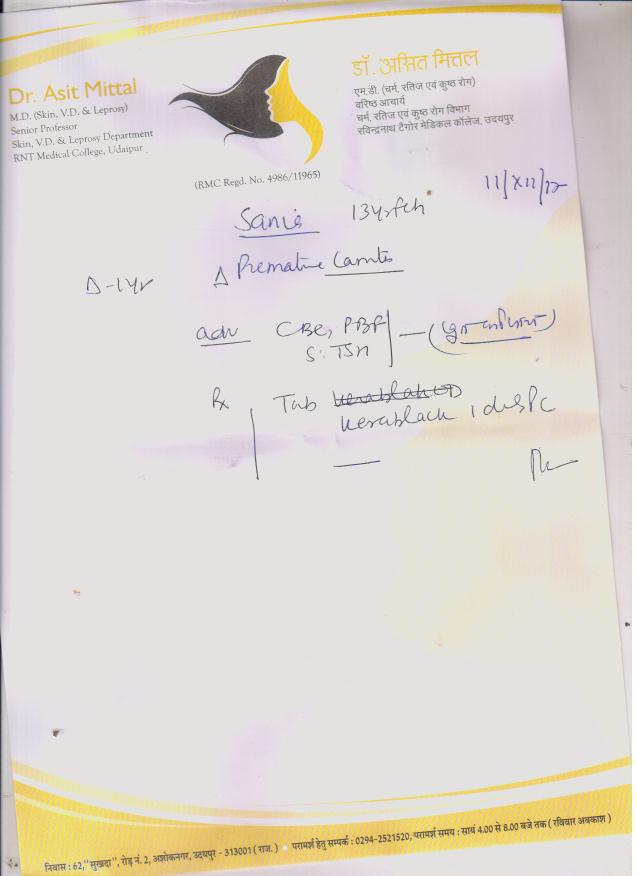 Dr. Asit Mittal
M.D. (Skin, V.D. & Leprosy)
Senior Professor
Skin, V.D. & Leprosy Department
RNT Medical College, Udaipur
डॉ. असित मित्तल
एम.डी. (चर्म, रतिज एवं कुष्ठ रोग)
वरिष्ठ आचार्य
चर्म, रतिज एवं कुष्ठ रोग विभाग
रविन्द्रनाथ टैगोर मेडिकल कॉलेज, उदयपुर
(RMC Regd. No. 4986/11965)
13yr
D-1yr
Δ Premature
adv CBC, PBF
S. TSH
Rx Tab
Kerablack 1
निवास : 62, "सुखदा", रोड़ नं. 2, अशोकनगर, उदयपुर - 313001 ( राज. ) परामर्श हेतु सम्पर्क : 0294-2521520, परामर्श समय : सायं 4.00 से 8.00 बजे तक ( रविवार अवकाश )